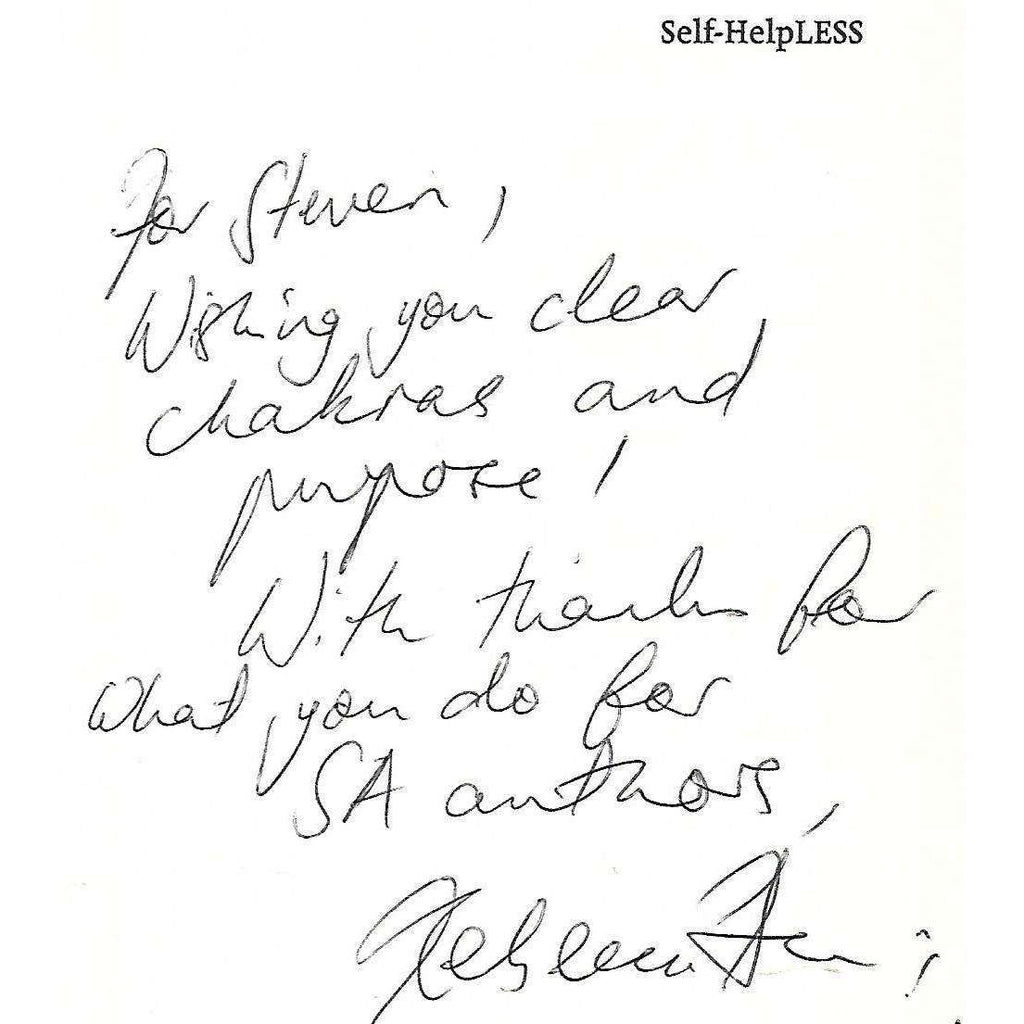 Self-HelpLESS
For Steven,
Wishing you clear
chakras and
purpose!
With thanks for
what you do for
SA authors,